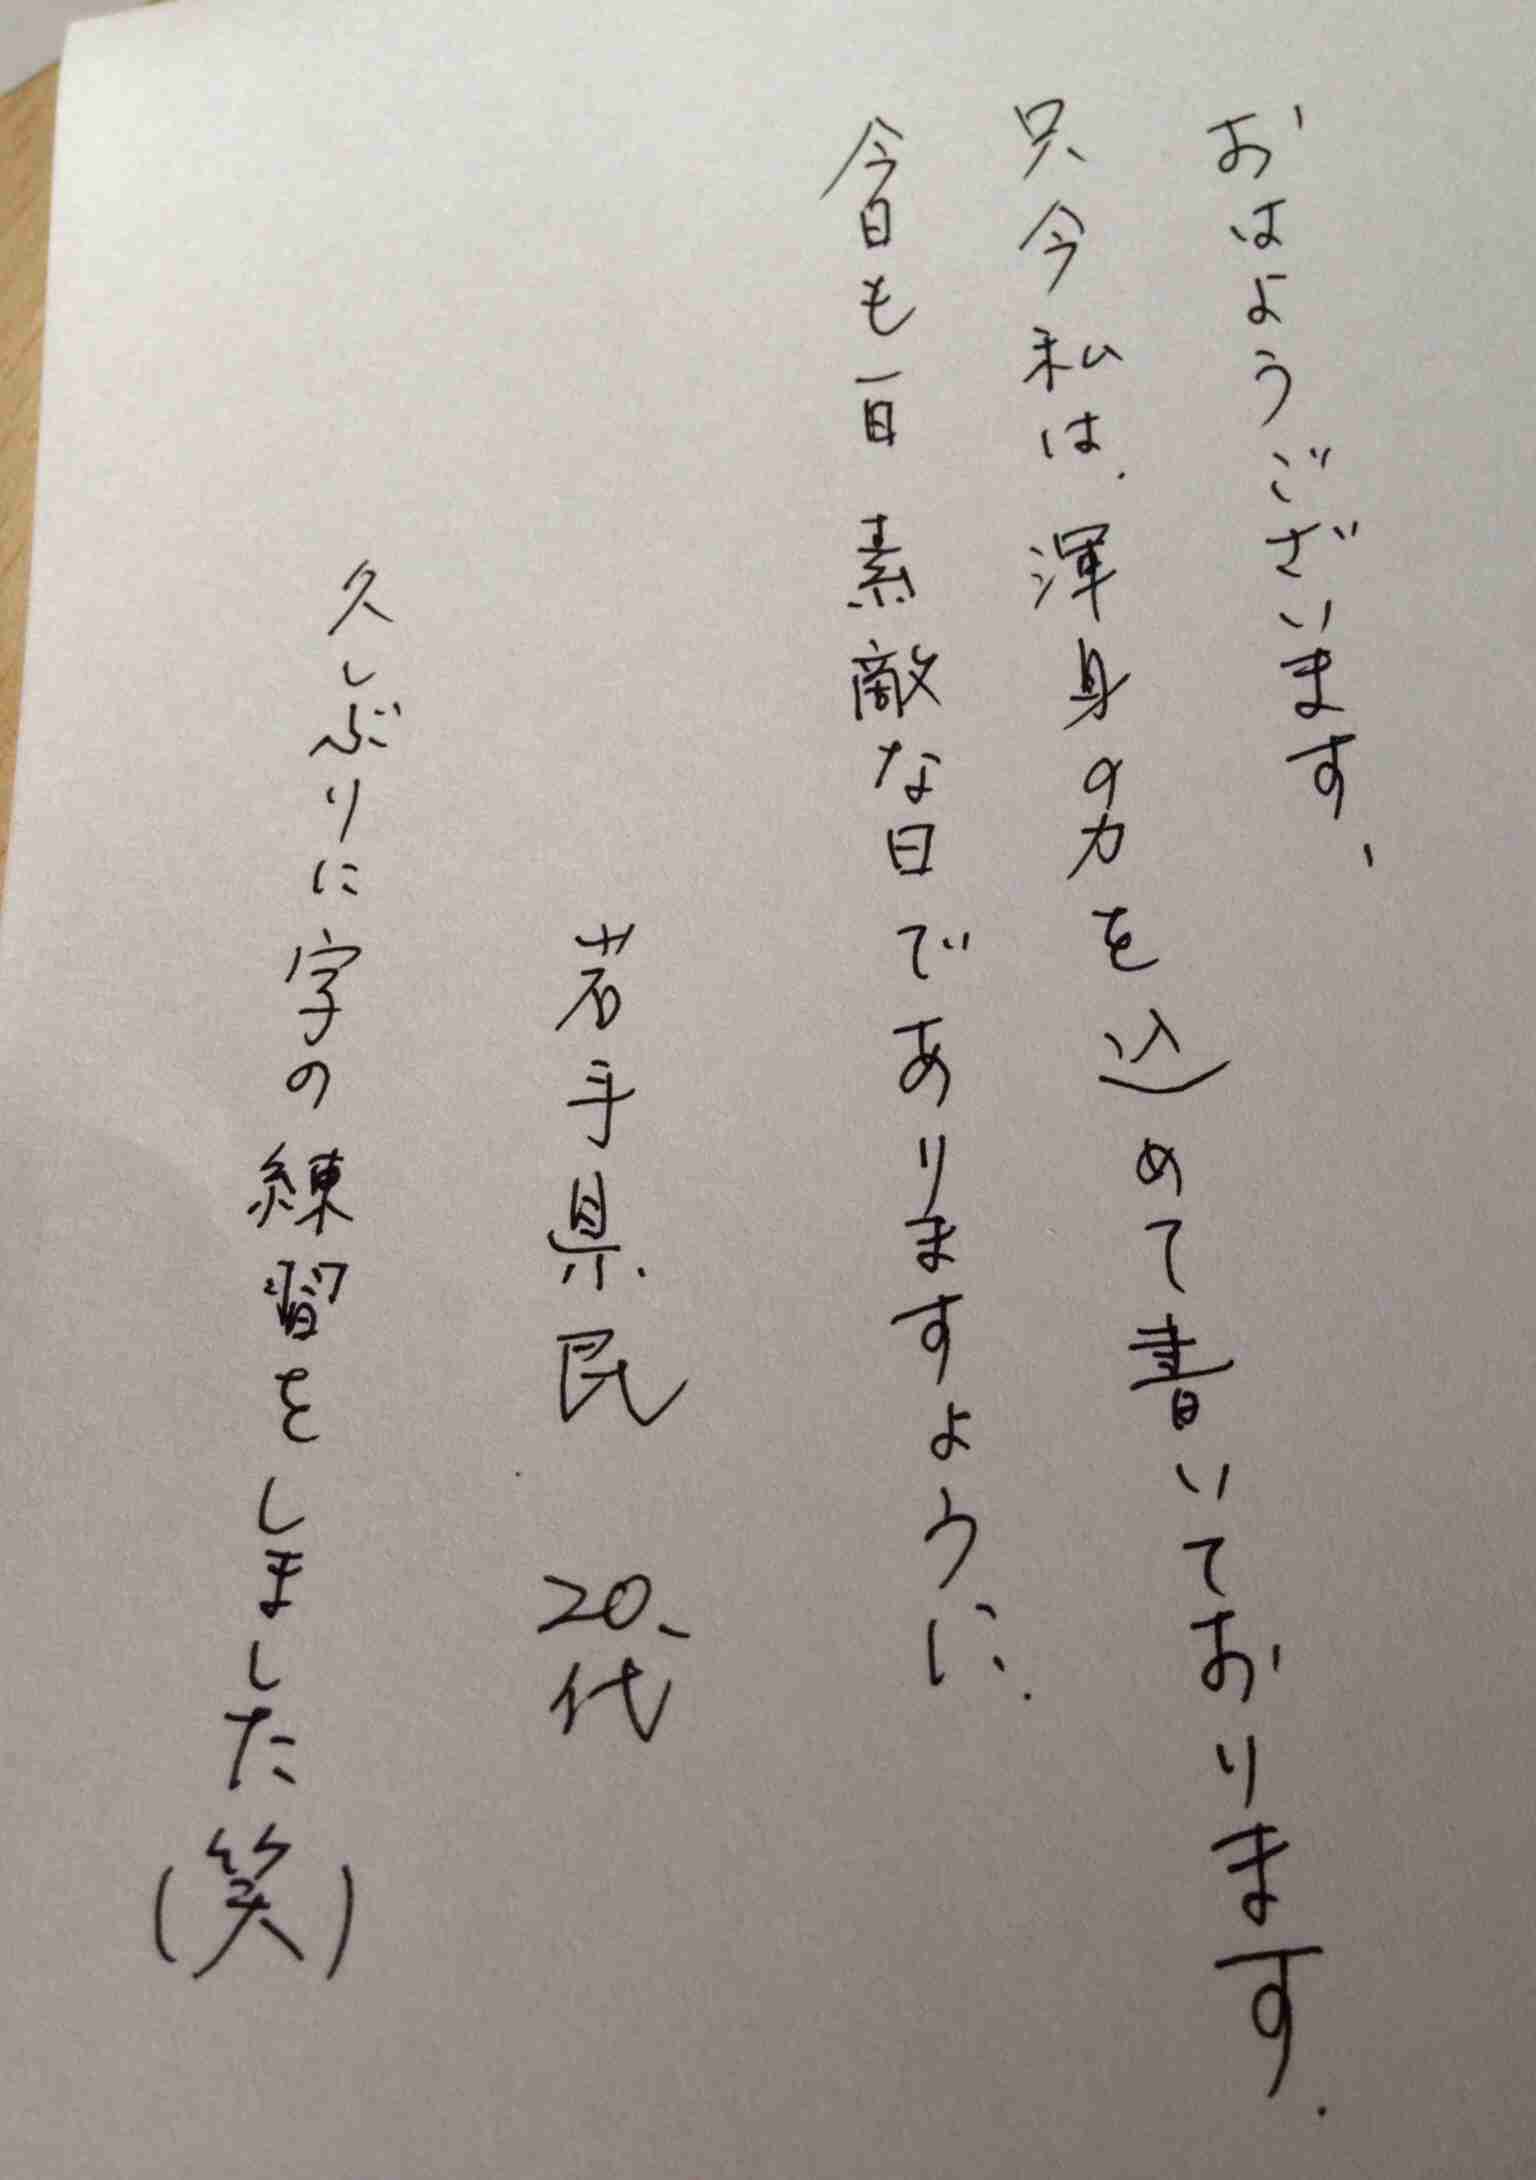 おはようございます、
只今私は、渾身の力を込めて書いております.
今日も一日素敵な日でありますように.
岩手県民 20代
久しぶりに字の練習をしました(笑)